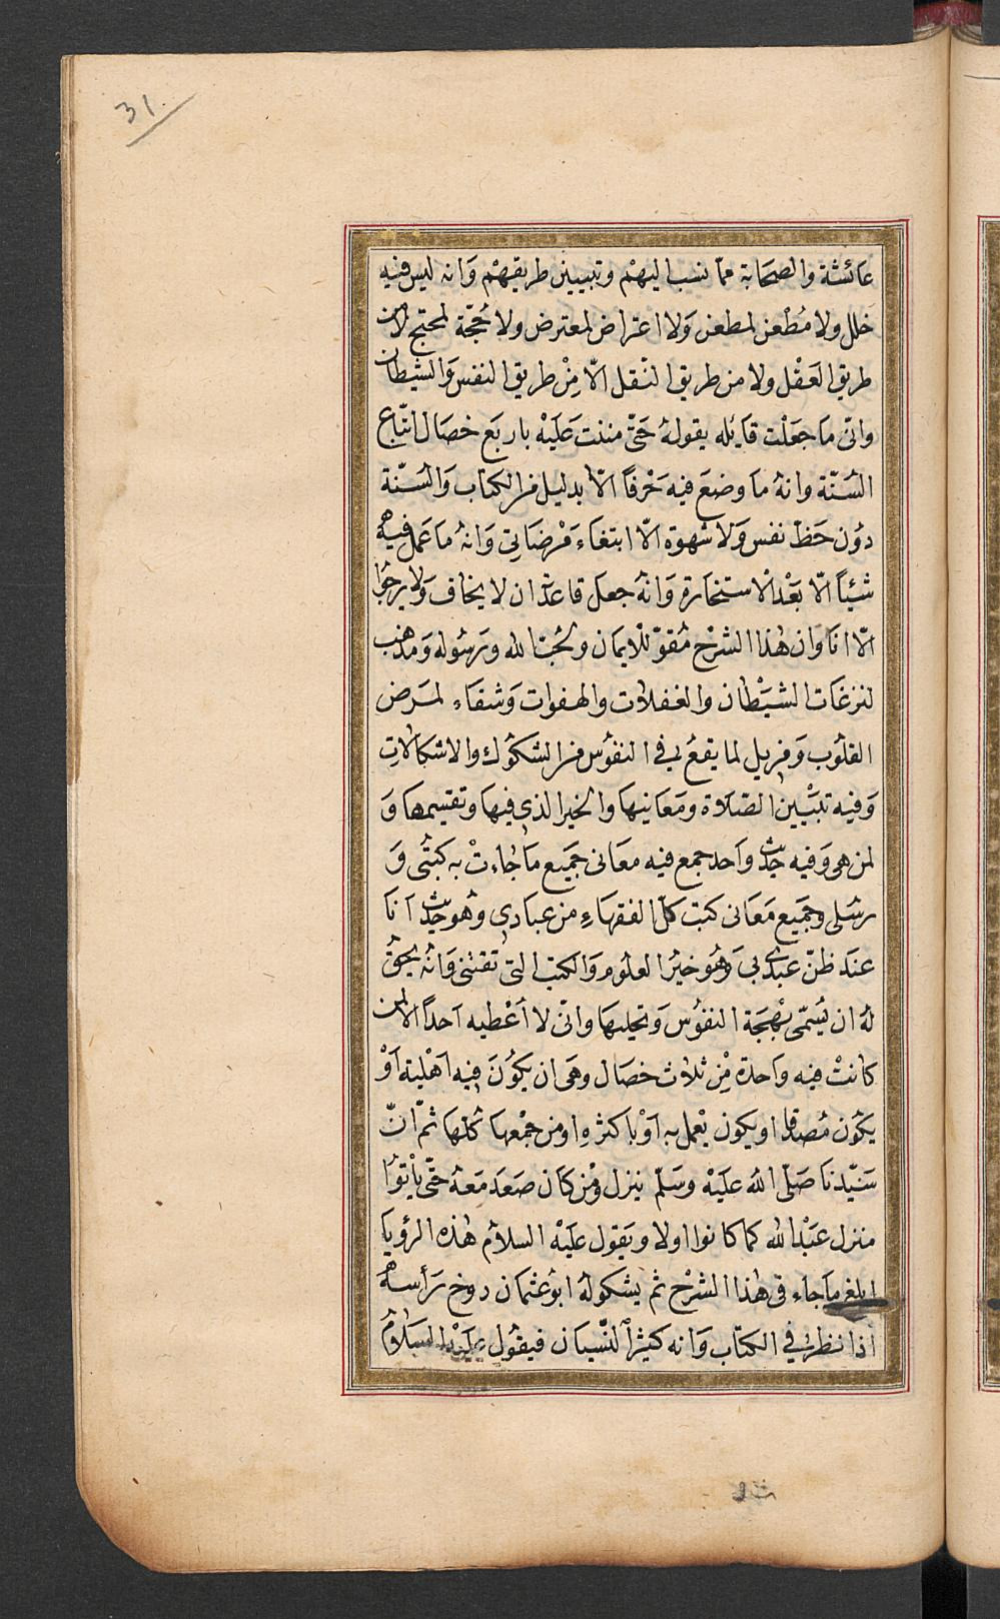 31
عائشة والصحابة مما نسب اليهم وتبيين طريقهم وانه ليس فيه
خلل ولا مطعن لمطعن ولا اعتراض لمعترض ولا حجّة لمحتج لا من
طريق العقل ولا من طريق النقل الّا من طريق النفس والشيطان
وانّي ما جعلت قائله يقوله حتّى مننت عليه باربع خصال اتّباع
السّنّة وانه ما وضع فيه حرفاً الّا بدليل من الكتاب والسّنّة
دون حظّ نفس ولا شهوة الّا ابتغاء مرضاتي وانه ما عمل فيه
شيئاً الّا بعد الاستخارة وانه جعل قاعدة ان لا يخاف ولا يرجوا
الّا انا وان هذا الشرح مقوّ للايمان ومحبّة لله ورسوله ومذهب
لنزغات الشيطان والغفلات والهفوات وشفاء لمرض
القلوب ومزيل لما يقع في النفوس من الشكوك والاشكالات
وفيه تبيين الصّلاة ومعانيها والخير الذي فيها وتقسيمها و
لمن هي وفيه حديث واحد جمع فيه معاني جميع ما جاءت به كتبي و
رسلي وجميع معاني كتب كلّ الفقهاء من عبادي وهو حديث انا
عند ظنّ عبدي بي وهو خير العلوم والكتب التي تقتني وانه يحقّ
له ان يسمّى بهجة النفوس وتحليها وانّي لا اعطيه احداً الا لمن
كانت فيه واحدة من ثلاث خصال وهي ان يكون فيه اهلية او
يكون مصدقا او يكون يعمل به او باكثره او من جمعها كلها ثمّ انّ
سيّدنا صلّى الله عليه وسلّم ينزل ومن كان صعد معه حتّى ياتوا
منزل عبد الله كما كانوا اولا ويقول عليه السلام هذه الرؤيا
ابلغ ما جاء في هذا الشرح ثم يشكو له ابو عثمان دوخ رأسه
اذا نظر في الكتاب وانه كثير النّسيان فيقول عليه السلام